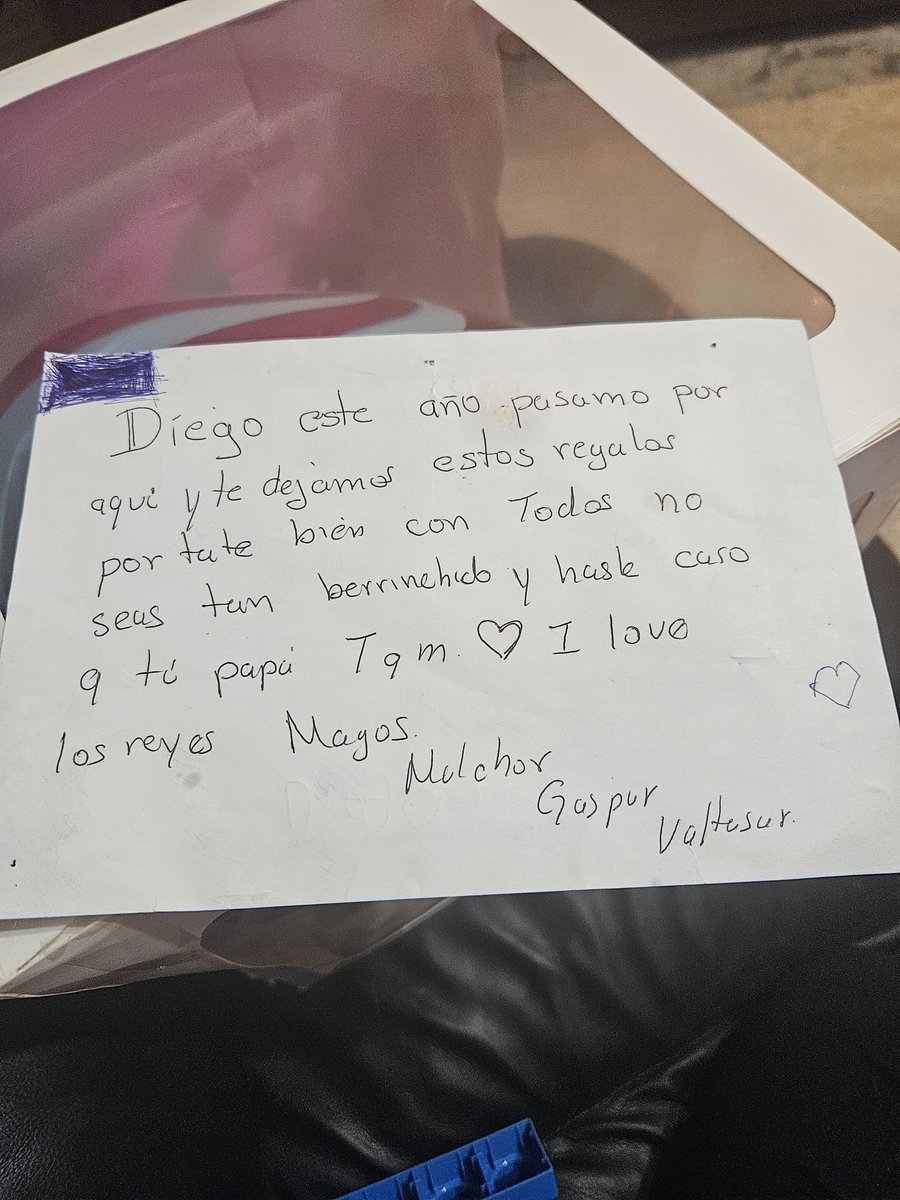 Diego este año pasamo por
aqui y te dejamos estos regalos
portate bién con Todos no
seas tan berrinchudo y hasle caso
a tú papá Tqm. ♡ I love
los reyes Magos.
Melchor
Gaspar
Valtasar.